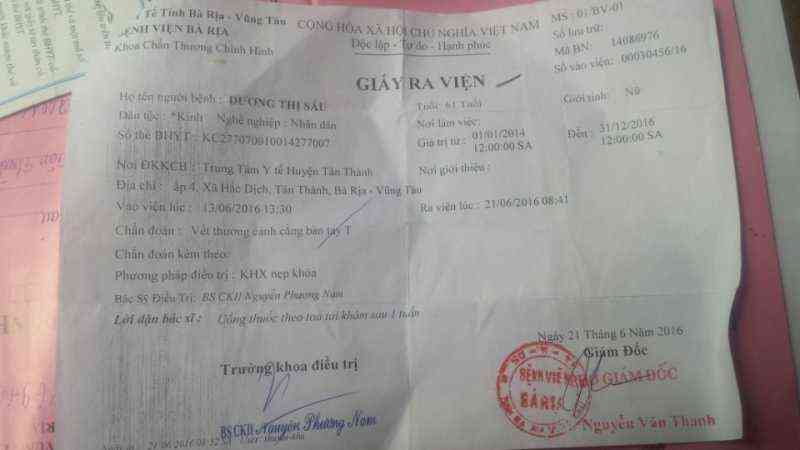 Tế Tỉnh Bà Rịa - Vũng Tàu
BỆNH VIỆN BÀ RỊA
Khoa Chấn Thương Chỉnh Hình
CỘNG HÒA XÃ HỘI CHỦ NGHĨA VIỆT NAM
Độc lập - Tự do - Hạnh phúc
MS : 01/BV-01
Số lưu trữ:
Mã BN: 14086976
Số vào viện: 00030456/16
GIẤY RA VIỆN
Họ tên người bệnh : DƯƠNG THỊ SÁU
Tuổi: 61 Tuổi
Giới tính: Nữ
Dân tộc : *Kinh Nghề nghiệp : Nhân dân
Nơi làm việc:
Số thẻ BHYT : KC277070010014277007
Giá trị từ : 01/01/2014 12:00:00 SA
Đến : 31/12/2016 12:00:00 SA
Nơi ĐKKCB : Trung Tâm Y tế Huyện Tân Thành
Nơi giới thiệu :
Địa chỉ : ấp 4, Xã Hắc Dịch, Tân Thành, Bà Rịa - Vũng Tàu
Vào viện lúc : 13/06/2016 13:30
Ra viện lúc : 21/06/2016 08:41
Chẩn đoán : Vết thương cánh cẳng bàn tay T
Chẩn đoán kèm theo:
Phương pháp điều trị : KHX nẹp khóa
Bác Sỹ Điều Trị: BS CKII Nguyễn Phương Nam
Lời dặn bác sĩ : Uống thuốc theo toa tái khám sau 1 tuần
Ngày 21 Tháng 6 Năm 2016
Trưởng khoa điều trị
Giám Đốc
BỆNH VIỆN
BÀ RỊA
GIÁM ĐỐC
BS CKII Nguyễn Phương Nam
Nguyễn Văn Thanh
21/06/2016 08:52